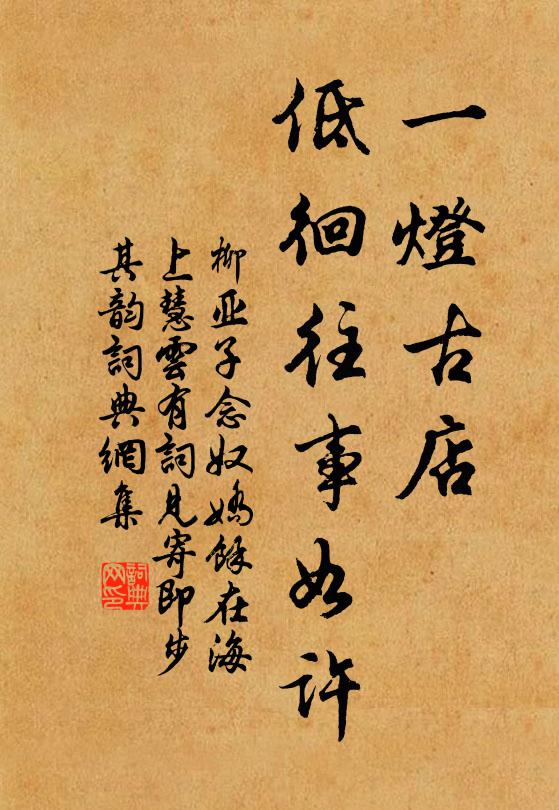 一燈古店
低徊往事如許
柳亚子念奴嬌餘在海
上慧雲有詞見寄即步
其韵詞典網集
詞典网印